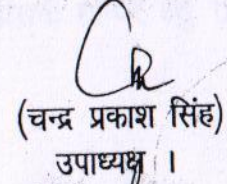 (चन्द्र प्रकाश सिंह)
उपाध्यक्ष ।